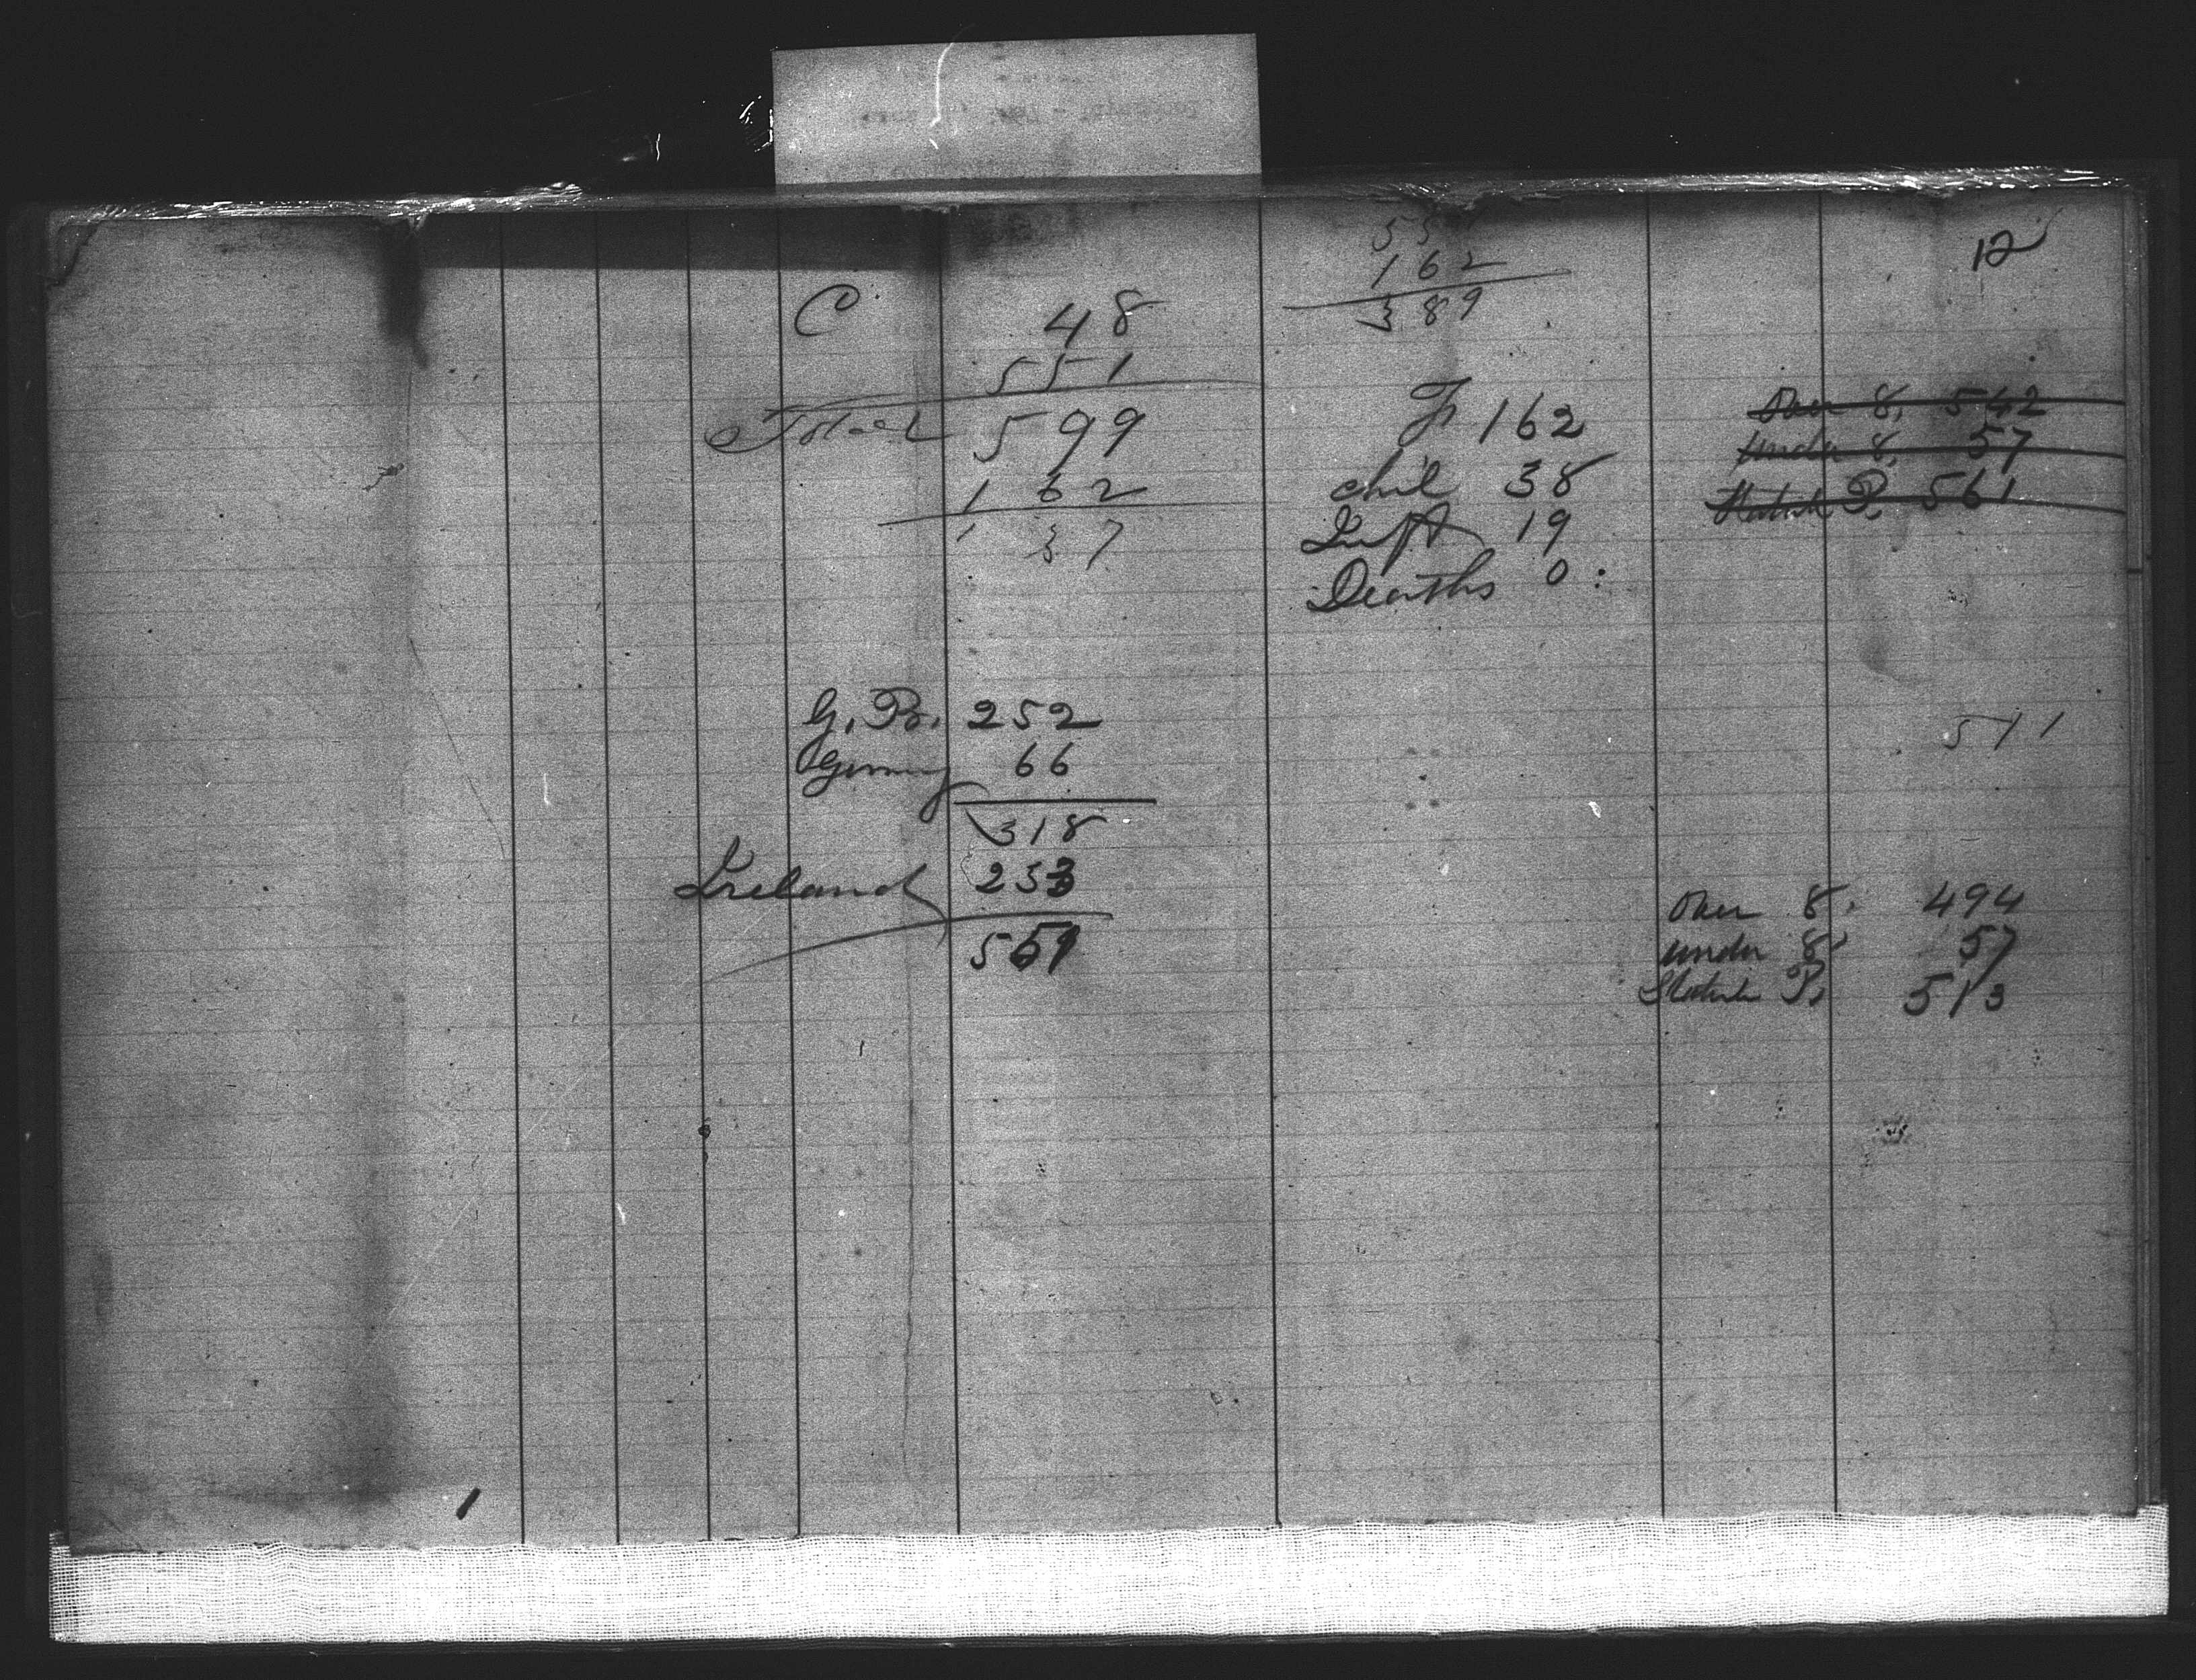 12
C 48
551
Total 599
162
137
551
162
389
Fr 162
Chil 38
Inft 19
Deaths 0
Over 8. 542
under 8. 57
Statute P. 561
G. Br. 252
Germny 66
318
Ireland 233
551
511
Over 8. 494
under 8. 57
Statute P. 513